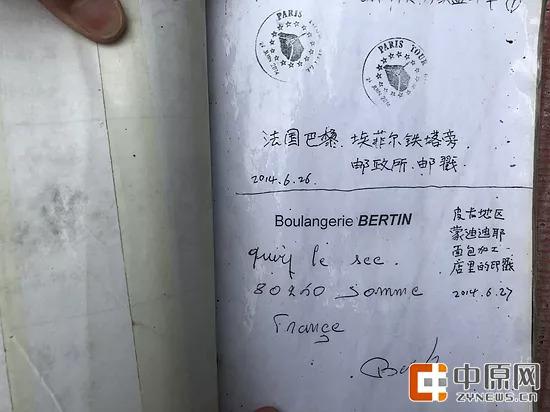 PARIS
PARIS TOUR
法国巴黎.埃菲尔铁塔旁
邮政所.邮戳
2014.6.26.
Boulangerie BERTIN
le
Somme
France
皮卡地区
蒙迪迪耶
面包加工
店里的印戳
2014.6.27
中原网
ZYNEWS.CN